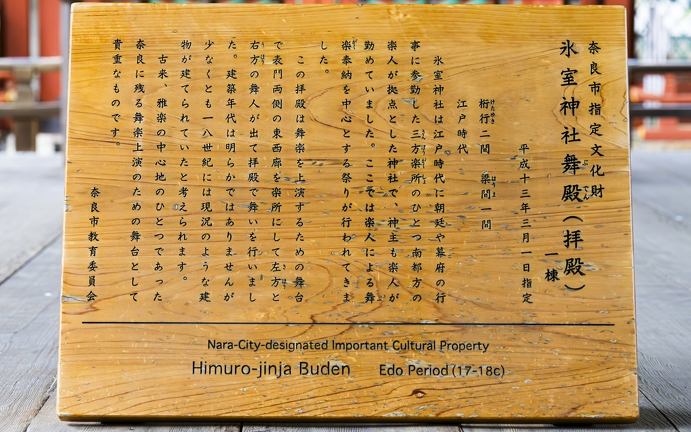 奈良市指定文化財
氷室神社舞殿(拝殿)
一棟
平成十三年三月一日指定
桁行二間 梁間一間
江戸時代
氷室神社は江戸時代に朝廷や幕府の行
事に参勤した三方楽所のひとつ南都方の
楽人が拠点とした神社で、神主も楽人が
勤めていました。ここでは楽人による舞
楽奉納を中心とする祭りが行われてきま
した。
この拝殿は舞楽を上演するための舞台
で表門両側の東西廊を楽所にして左方と
右方の舞人が出て拝殿で舞いを行いまし
た。建築年代は明らかではありませんが
少なくとも一八世紀には現況のような建
物が建てられていたと考えられます。
古来、雅楽の中心地のひとつであった
奈良に残る舞楽上演のための舞台として
貴重なものです。
奈良市教育委員会
Nara-City-designated Important Cultural Property
Himuro-jinja Buden Edo Period (17-18c)